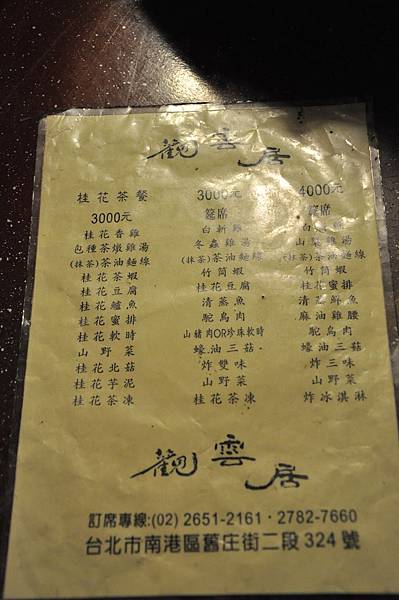 觀雲居
桂花茶餐
3000元
桂花香雞
包種茶燉雞湯
(抹茶)茶油麵線
桂花茶蝦
桂花豆腐
桂花鱸魚
桂花蜜排
桂花軟時
山野菜
桂花北菇
桂花芋泥
桂花茶凍
3000元
筵席
白斬雞
冬蟲雞湯
(抹茶)茶油麵線
竹筒蝦
桂花豆腐
清蒸魚
駝鳥肉
山豬肉OR珍珠軟時
蠔油三菇
炸雙味
山野菜
桂花茶凍
4000元
筵席
白斬雞
山藥雞湯
(抹茶)茶油麵線
竹筒蝦
桂花蜜排
清蒸鮮魚
麻油雞腰
駝鳥肉
蠔油三菇
炸三味
山野菜
炸冰淇淋
觀雲居
訂席專線:(02) 2651-2161·2782-7660
台北市南港區舊庄街二段324號